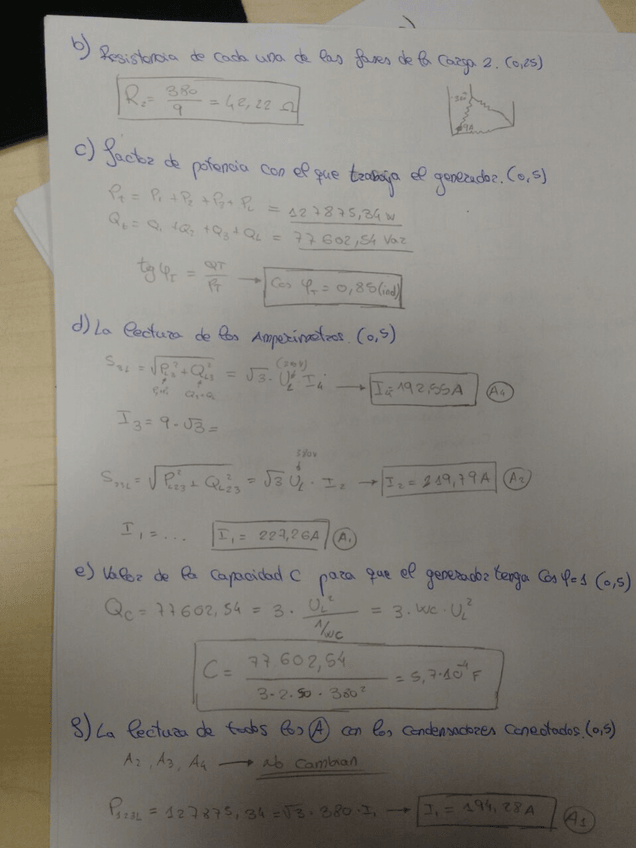 b) Resistencia de cada una de las fases de la carga 2. (0,25)
R₂ = 380/9 = 42,22 Ω
c) factor de potencia con el que trabaja el generador. (0,5)
P_T = P₁ + P₂ + P₃ + P_L = 127875,34 W
Q_T = Q₁ + Q₂ + Q₃ + Q_L = 77602,54 Var
tg φ_T = Q_T/P_T → cos φ_T = 0,85 (ind)
d) La lectura de los Amperimetros. (0,5)
= √3 · U_L · I₄ → I₄ = 192,55 A (A₄)
I₃ = 9 · √3 =
= √3 U_L · I₂ → I₂ = 219,79 A (A₂)
I₁ = ... I₁ = 227,26 A (A₁)
e) Valor de la capacidad C para que el generador tenga cos φ = 1 (0,5)
Q_C = 77602,54 = 3 · U_L²/(1/WC) = 3 · WC · U_L²
C = 77602,54/(3 · 2 · 50 · 380²) = 5,7·10⁻⁴ F
f) La lectura de todos los (A) con los condensadores conectados. (0,5)
A₂, A₃, A₄ → No cambian
P₁₂₃L = 127875,34 = √3 · 380 · I₁ → I₁ = 194,28 A (A₁)